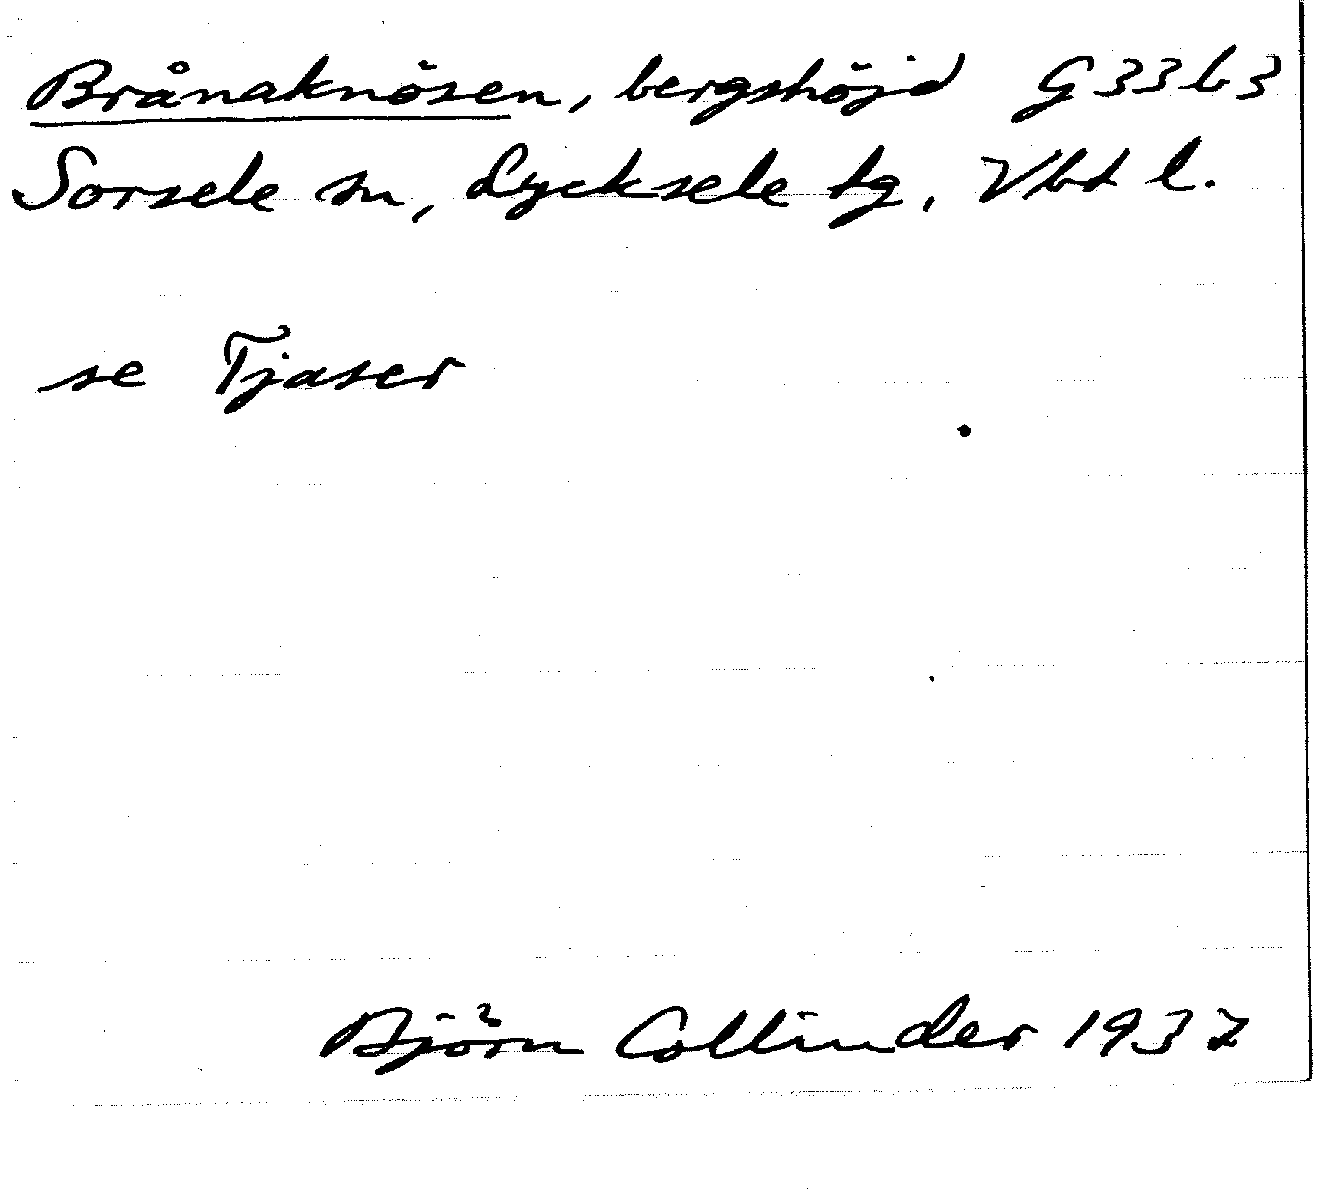 Brånaknösen, bergshöjd G33b3
Sorsele sn, Lycksele tg, Vbt l.
se Tjaser
Björn Collinder 1937